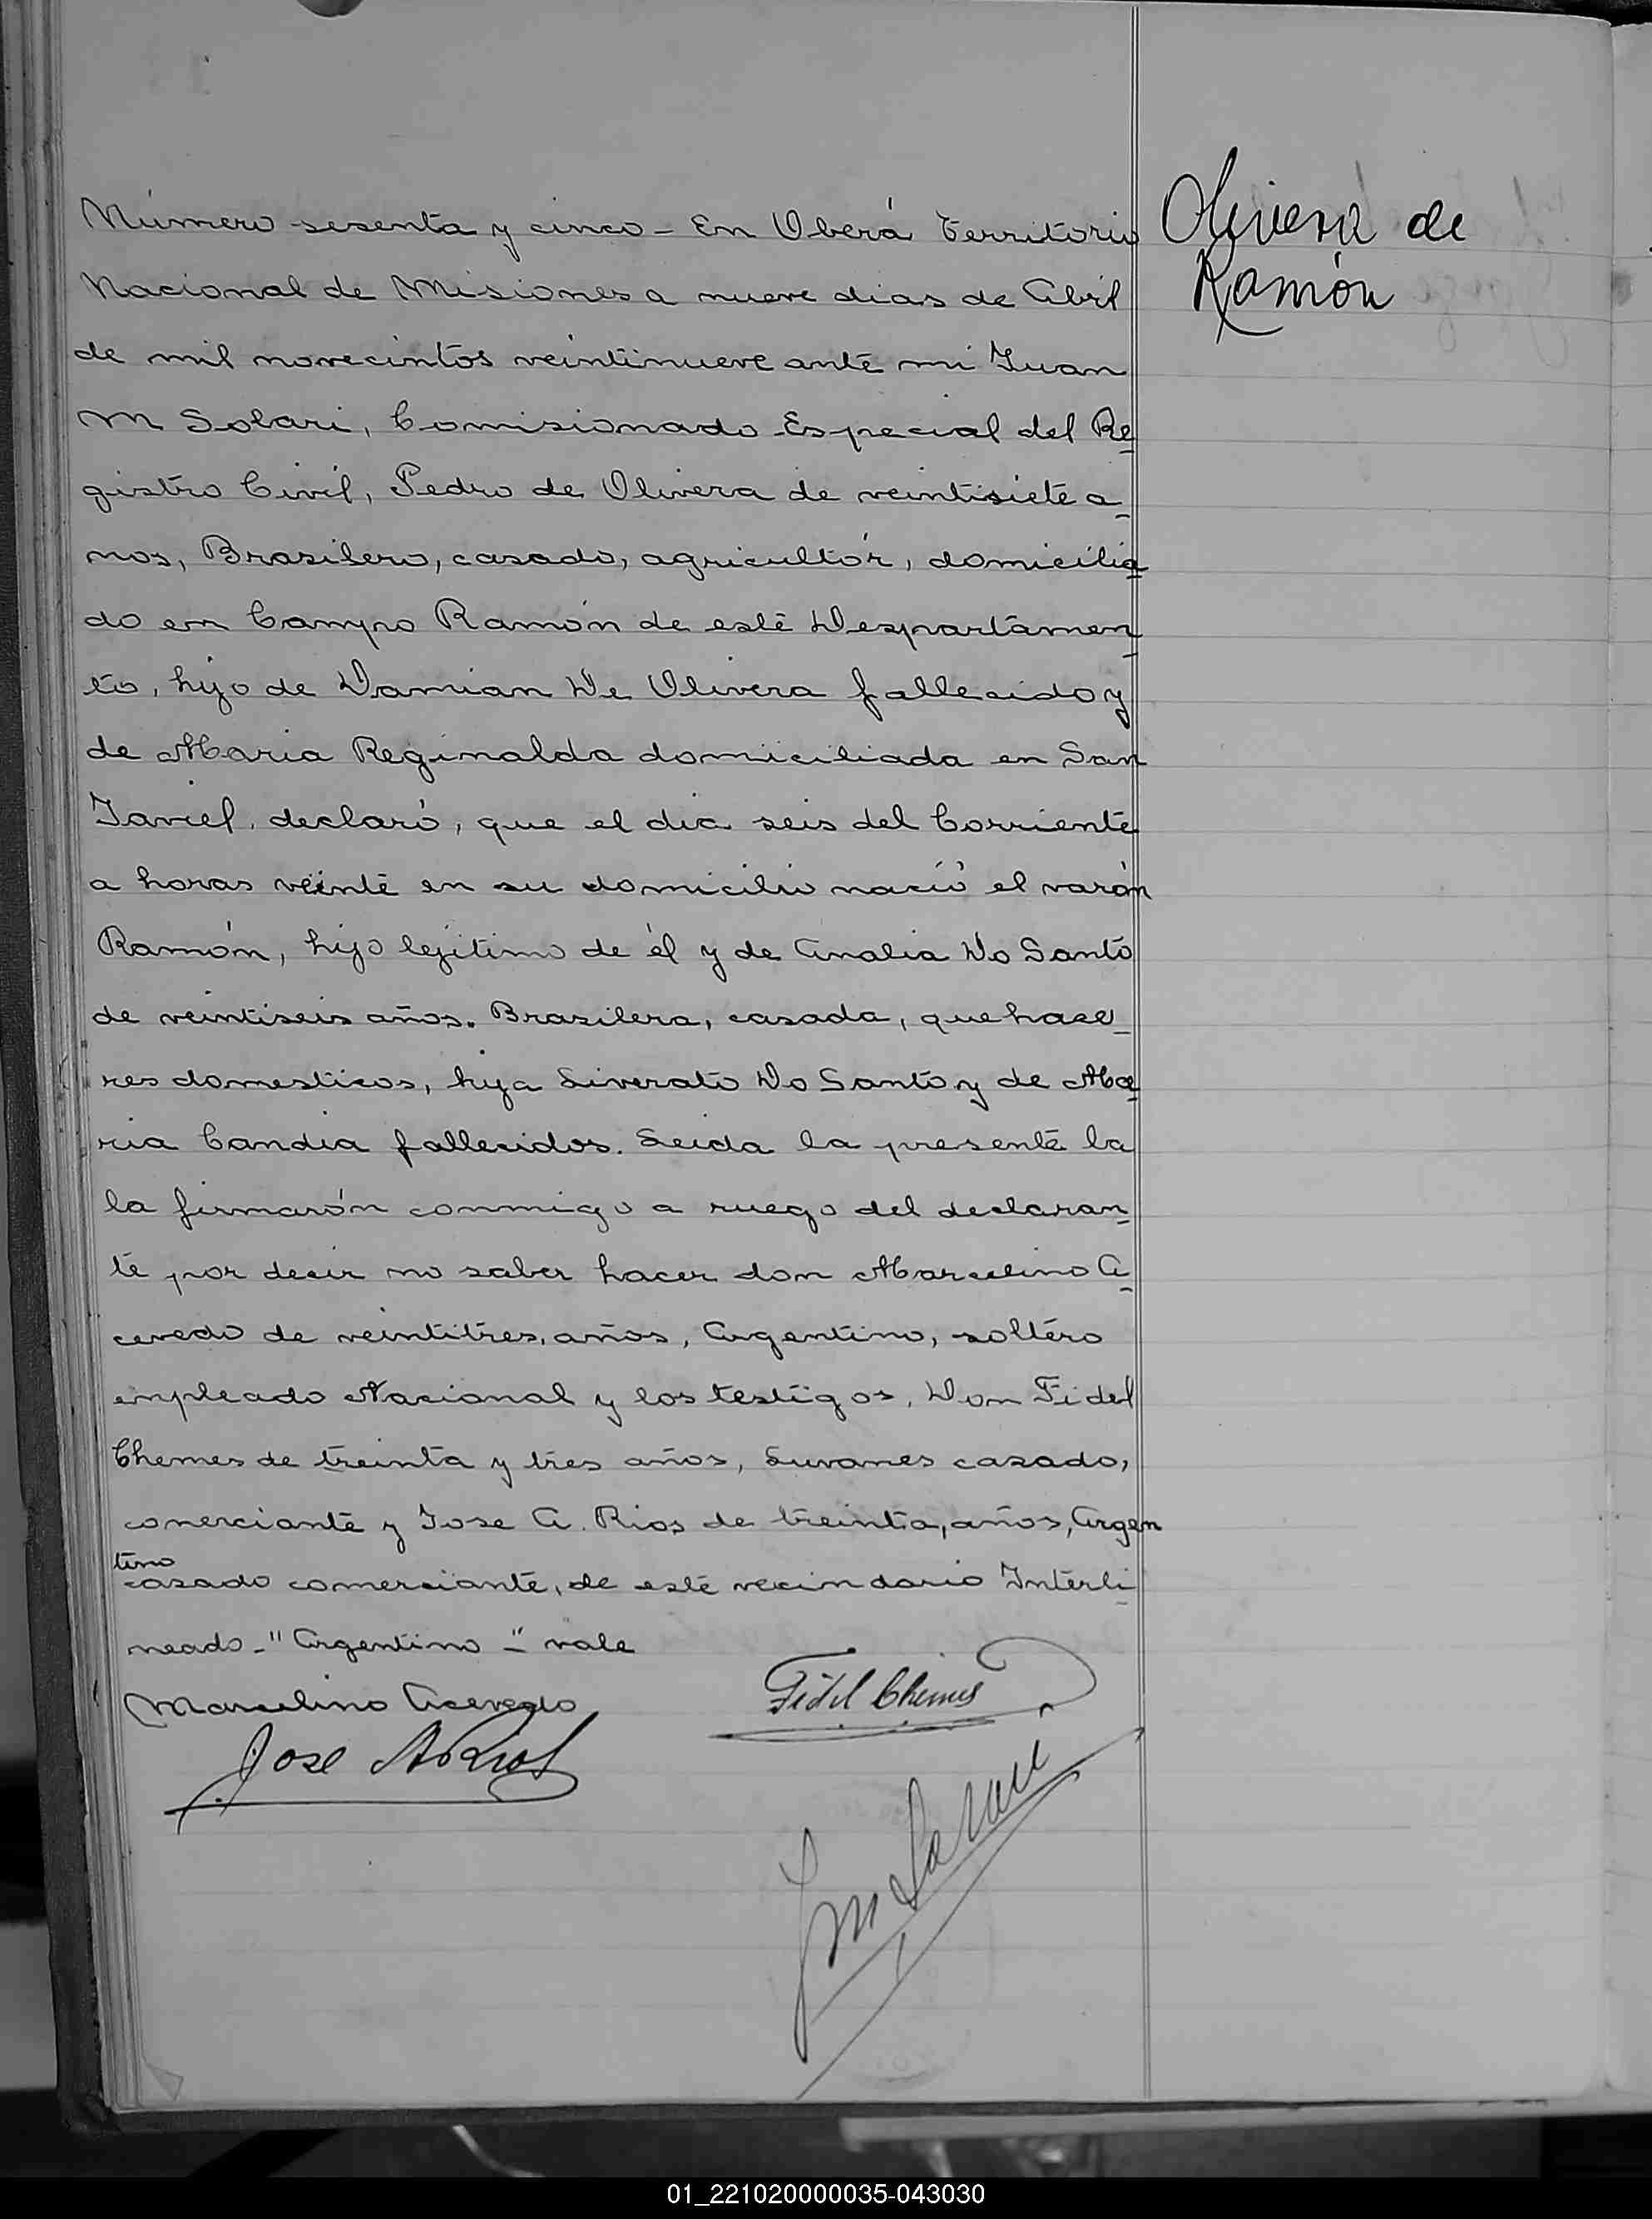 Olivera de
Ramón
Número sesenta y cinco - En Oberá Territorio
Nacional de Misiones a nueve dias de Abril
de mil novecintos veintinueve ante mi Juan
M Solari, Comisionado Especial del Re
gistro Civil, Pedro de Olivera de veintisiete a
nos, Brasilero, casado, agricultór, domicilia
do en Campo Ramón de este Despartamen
to, hijo de Damian De Olivera fallecido y
de Maria Reginalda domiciliada en San
Javiel, declaró, que el dia seis del Corriente
a horas veinte en su domicilio nació el varón
Ramón, hijo lejitimo de él y de Analia Do Santo
de veintiseis años. Brasilera, casada, quehace
res domesticos, hija Liverato Do Santo y de Ma
ria Candia fallecidos. Leida la presente la
la firmarón conmigo a ruego del declaran
te por decir no saber hacer don Marcelino A
cevedo de veintitres, años, Argentino, soltéro
empleado Nacional y los testigos, Don Fidel
Chemes de treinta y tres años, Livanes casado,
comerciante y Jose A. Rios de treinta, años, Argen
tino
casado comerciante, de este vecindario Interli
neado - "Argentino" - vale
Marcelino Acevedo
Fidel Chemes
Jose A Rios
J M Solari
01_221020000035-043030